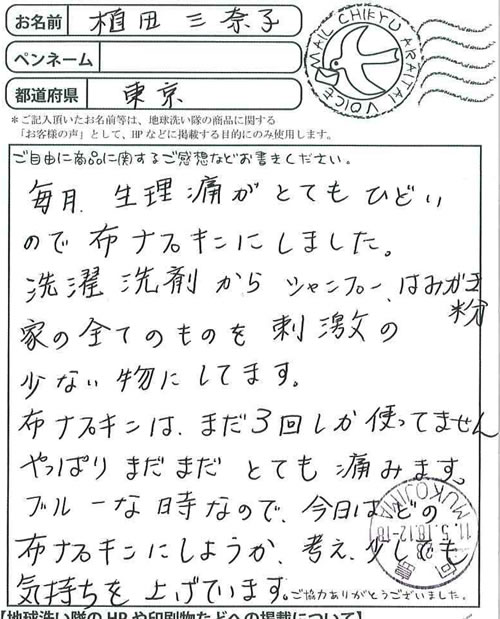 お名前 植田 三奈子
MAIL CHIKYU ARAITAI VOICE
ペンネーム
都道府県 東京
*ご記入頂いたお名前等は、地球洗い隊の商品に関する
「お客様の声」として、HPなどに掲載する目的にのみ使用します。
ご自由に商品に関するご感想などお書きください。
毎月、生理痛がとてもひどい
ので布ナプキンにしました。
洗濯洗剤からシャンプー、はみがき
粉
家の全てのものを刺激の
少ない物にしてます。
布ナプキンは、まだ3回しか使ってません
やっぱりまだまだとても痛みます。
ブルーな時なので、今日はどの
布ナプキンにしようか、考え、少しでも
気持ちを上げています。
ご協力ありがとうございました。
MUKOJIMA
11.5.18.12-18
向島
【地球洗い隊のHPや印刷物などへの掲載について】